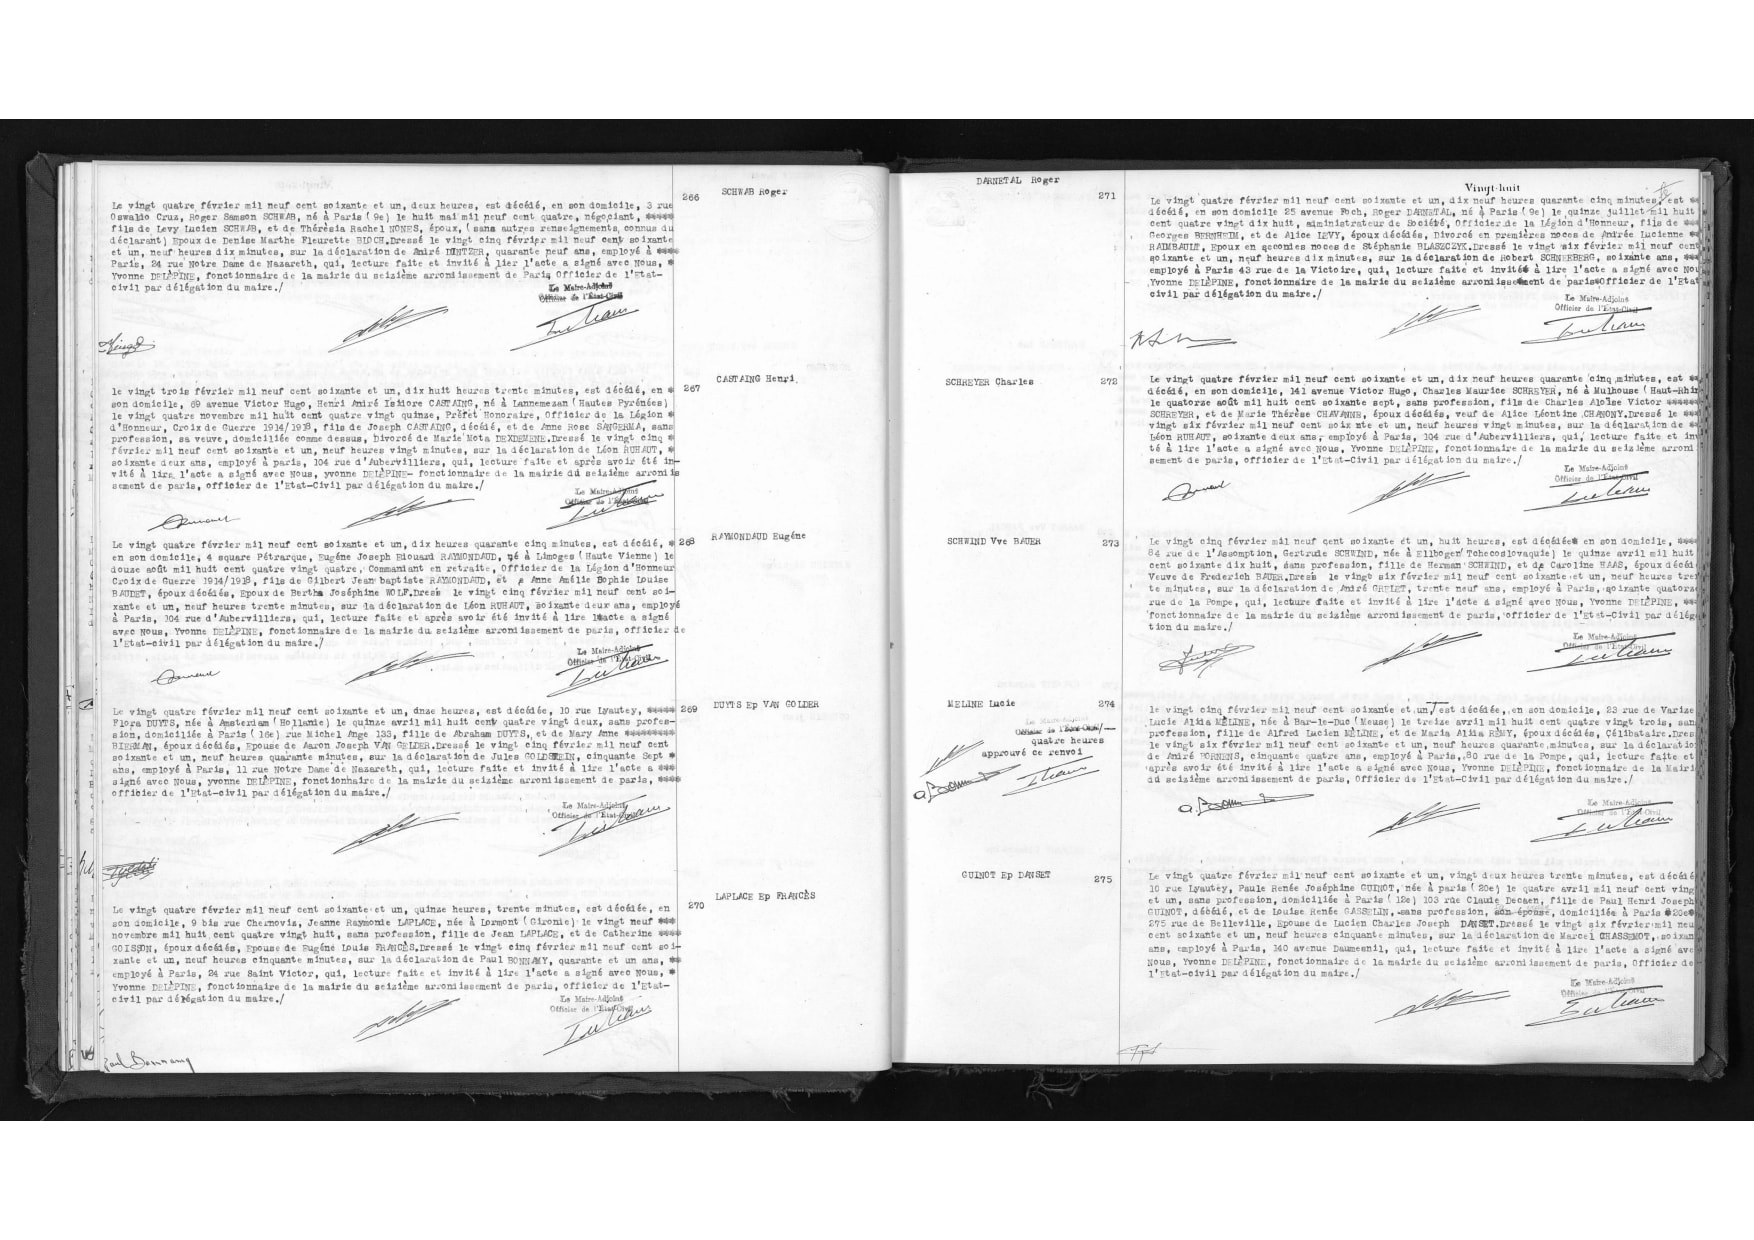 SCHWAB Roger
266
Le vingt quatre février mil neuf cent soixante et un, deux heures, est décédé, en son domicile, 3 rue
Oswaldo Cruz, Roger Samson SCHWAB, né à Paris (9e) le huit mai mil neuf cent quatre, négociant, *****
fils de Levy Lucien SCHWAB, et de Thérésia Rachel NONES, époux, (sans autres renseignements, connus du
déclarant) Epoux de Denise Marthe Fleurette BLOCH.Dressé le vingt cinq février mil neuf cent soixante
et un, neuf heures dix minutes, sur la déclaration de André quarante neuf ans, employé à ****
Paris, 24 rue Notre Dame de Nazareth, qui, lecture faite et invité à lier l'acte a signé avec Nous, *
Yvonne DELÉPINE, fonctionnaire de la mairie du seizième arrondissement de Paris Officier de l'Etat-
civil par délégation du maire./
Le Maire-Adjoint
Officier de l'Etat-Civil
CASTAING Henri
267
le vingt trois février mil neuf cent soixante et un, dix huit heures trente minutes, est décédé, en *
son domicile, 69 avenue Victor Hugo, Henri André Isidore CASTAING, né à Lannemezan (Hautes Pyrénées)
le vingt quatre novembre mil huit cent quatre vingt quinze, Préfet Honoraire, Officier de la Légion *
d'Honneur, Croix de Guerre 1914/1918, fils de Joseph CASTAING, décédé, et de Anne Rose SANGERMA, sans
profession, sa veuve, domiciliée comme dessus, divorcé de Marie Mota DEXDEMENE.Dressé le vingt cinq *
février mil neuf cent soixante et un, neuf heures vingt minutes, sur la déclaration de Léon RUHAUT, *
soixante deux ans, employé à paris, 104 rue d'Aubervilliers, qui, lecture faite et après avoir été in-
vité à lire l'acte a signé avec Nous, Yvonne DELÉPINE- fonctionnaire de la mairie du seizième arrondis
sement de paris, officier de l'Etat-Civil par délégation du maire./
Le Maire-Adjoint
Officier de l'Etat-Civil
RAYMONDAUD Eugéne
268
Le vingt quatre février mil neuf cent soixante et un, dix heures quarante cinq minutes, est décédé, *
en son domicile, 4 square Pétrarque, Eugéne Joseph Edouard RAYMONDAUD, né à Limoges (Haute Vienne) le
douze août mil huit cent quatre vingt quatre, Commandant en retraite, Officier de la Légion d'Honneur
Croix de Guerre 1914/1918, fils de Gilbert Jean baptiste RAYMONDAUD, et Anne Amélie Sophie Louise
BAUDET, époux décédés, Epoux de Bertha Joséphine WOLF.Dressé le vingt cinq février mil neuf cent soi-
xante et un, neuf heures trente minutes, sur la déclaration de Léon RUHAUT, soixante deux ans, employé
à Paris, 104 rue d'Aubervilliers, qui, lecture faite et après avoir été invité à lire l'acte a signé
avec Nous, Yvonne DELÉPINE, fonctionnaire de la mairie du seizième arrondissement de paris, officier de
l'Etat-civil par délégation du maire./
Le Maire-Adjoint
Officier de l'Etat-Civil
DUYTS Ep VAN GOLDER
269
Le vingt quatre février mil neuf cent soixante et un, onze heures, est décédée, 10 rue Lyautey, *****
Flora DUYTS, née à Amsterdam (Hollande) le quinze avril mil huit cent quatre vingt deux, sans profes-
sion, domiciliée à Paris (16e) rue Michel Ange 133, fille de Abraham DUYTS, et de Mary Anne *********
BIERMAN, époux décédés, Epouse de Aaron Joseph VAN GELDER.Dressé le vingt cinq février mil neuf cent
soixante et un, neuf heures quarante minutes, sur la déclaration de Jules GOLDSTEIN, cinquante sept *
ans, employé à Paris, 11 rue Notre Dame de Nazareth, qui, lecture faite et invité à lire l'acte a ***
signé avec Nous, yvonne DELÉPINE, fonctionnaire de la mairie du seizième arrondissement de paris, ****
officier de l'Etat-Civil par délégation du maire./
Le Maire-Adjoint
Officier de l'Etat-Civil
LAPLACE Ep FRANCÈS
270
Le vingt quatre février mil neuf cent soixante et un, quinze heures, trente minutes, est décédée, en
son domicile, 9 bis rue Chernovis, Jeanne Raymonde LAPLACE, née à Lormont (Gironde) le vingt neuf ***
novembre mil huit cent quatre vingt huit, sans profession, fille de Jean LAPLACE, et de Catherine ****
GOISSON, époux décédés, Epouse de Eugéne Louis FRANCÈS.Dressé le vingt cinq février mil neuf cent soi-
xante et un, neuf heures cinquante minutes, sur la déclaration de Paul BONNAMY, quarante et un ans, **
employé à Paris, 24 rue Saint Victor, qui, lecture faite et invité à lire l'acte a signé avec Nous, *
Yvonne DELÉPINE, fonctionnaire de la mairie du seizième arrondissement de paris, officier de l'Etat-
civil par délégation du maire./
Le Maire-Adjoint
Officier de l'Etat-Civil
Paul Bonnamy
DARNETAL Roger
271
Vingt-huit
Le vingt quatre février mil neuf cent soixante et un, dix neuf heures quarante cinq minutes, est *
décédé, en son domicile 25 avenue Foch, Roger DARNETAL, né à Paris (9e) le quinze juillet mil huit
cent quatre vingt dix huit, administrateur de Société, Officier de la Légion d'Honneur, fils de ***
Georges BERNHEIM, et de Alice LEVY, époux décédés, Divorcé en premières noces de Andrée Lucienne **
RAIMBAULT, Epoux en secondes noces de Stéphanie BLASZCZYK.Dressé le vingt six février mil neuf cent
soixante et un, neuf heures dix minutes, sur la déclaration de Robert SCHNERBERG, soixante ans, ***
employé à Paris 43 rue de la Victoire, qui, lecture faite et invité à lire l'acte a signé avec Nou
Yvonne DELÉPINE, fonctionnaire de la mairie du seizième arrondissement de paris Officier de l'Etat
civil par délégation du maire./
Le Maire-Adjoint
Officier de l'Etat-Civil
SCHREYER Charles
272
Le vingt quatre février mil neuf cent soixante et un, dix neuf heures quarante cinq minutes, est **
décédé, en son domicile, 141 avenue Victor Hugo, Charles Maurice SCHREYER, né à Mulhouse (Haut-Rhin
le quatorze août mil huit cent soixante sept, sans profession, fils de Charles Aloïse Victor ******
SCHREYER, et de Marie Thérèse CHAVANNE, époux décédés, veuf de Alice Léontine CHANONY.Dressé le ****
vingt six février mil neuf cent soixante et un, neuf heures vingt minutes, sur la déclaration de **
Léon RUHAUT, soixante deux ans, employé à Paris, 104 rue d'Aubervilliers, qui, lecture faite et inv
té à lire l'acte a signé avec Nous, Yvonne DELÉPINE, fonctionnaire de la mairie du seizième arrondi
sement de paris, officier de l'Etat-Civil par délégation du maire./
Le Maire-Adjoint
Officier de l'Etat-Civil
SCHWIND Vve BAUER
273
Le vingt cinq février mil neuf cent soixante et un, huit heures, est décédée en son domicile, ****
84 rue de l'Assomption, Gertrude SCHWIND, née à Ellbogen Tchecoslovaquie) le quinze avril mil huit
cent soixante dix huit, sans profession, fille de Herman SCHWIND, et de Caroline HAAS, époux décédé
Veuve de Frederich BAUER.Dressé le vingt six février mil neuf cent soixante et un, neuf heures tren
te minutes, sur la déclaration de André GRELET, trente neuf ans, employé à Paris, soixante quatorze
rue de la Pompe, qui, lecture faite et invité à lire l'acte a signé avec Nous, Yvonne DELÉPINE, ***
fonctionnaire de la mairie du seizième arrondissement de paris, officier de l'Etat-Civil par déléga
tion du maire./
Le Maire-Adjoint
Officier de l'Etat-Civil
MELINE Lucie
274
Le Maire-Adjoint
Officier de l'Etat-Civil/—
quatre heures
approuvé ce renvoi
le vingt quatre février mil neuf cent soixante et un, est décédée, en son domicile, 23 rue de Varize
Lucie Alida MÉLINE, née à Bar-le-Duc (Meuse) le treize avril mil huit cent quatre vingt trois, sans
profession, fille de Alfred Lucien MÉLINE, et de Maria Alida RÉMY, époux décédés, Célibataire.Dres
le vingt six février mil neuf cent soixante et un, neuf heures quarante minutes, sur la déclaratio
de André cinquante quatre ans, employé à Paris, 80 rue de la Pompe, qui, lecture faite et
après avoir été invité à lire l'acte a signé avec Nous, Yvonne DELÉPINE, fonctionnaire de la Mairi
du seizième arrondissement de paris, officier de l'Etat-Civil par délégation du maire./
Le Maire-Adjoint
Officier de l'Etat-Civil
GUINOT Ep DANSET
275
Le vingt quatre février mil neuf cent soixante et un, vingt deux heures trente minutes, est décédée
10 rue Lyautey, Paule Renée Joséphine GUINOT, née à paris (20e) le quatre avril mil neuf cent ving
et un, sans profession, domiciliée à Paris (12e) 103 rue Claude Decaen, fille de Paul Henri Joseph
GUINOT, décédé, et de Louise Renée GASSELIN, sans profession, son épouse, domiciliée à Paris *20e*
275 rue de Belleville, Epouse de Lucien Charles Joseph DANSET.Dressé le vingt six février mil neu
cent soixante et un, neuf heures cinquante minutes, sur la déclaration de Marcel CHASSEMOT, soixan
ans, employé à Paris, 140 avenue Daumesnil, qui, lecture faite et invité à lire l'acte a signé ave
Nous, Yvonne DELÉPINE, fonctionnaire de la mairie du seizième arrondissement de paris, Officier de
l'Etat-civil par délégation du maire./
Le Maire-Adjoint
Officier de l'Etat-Civil